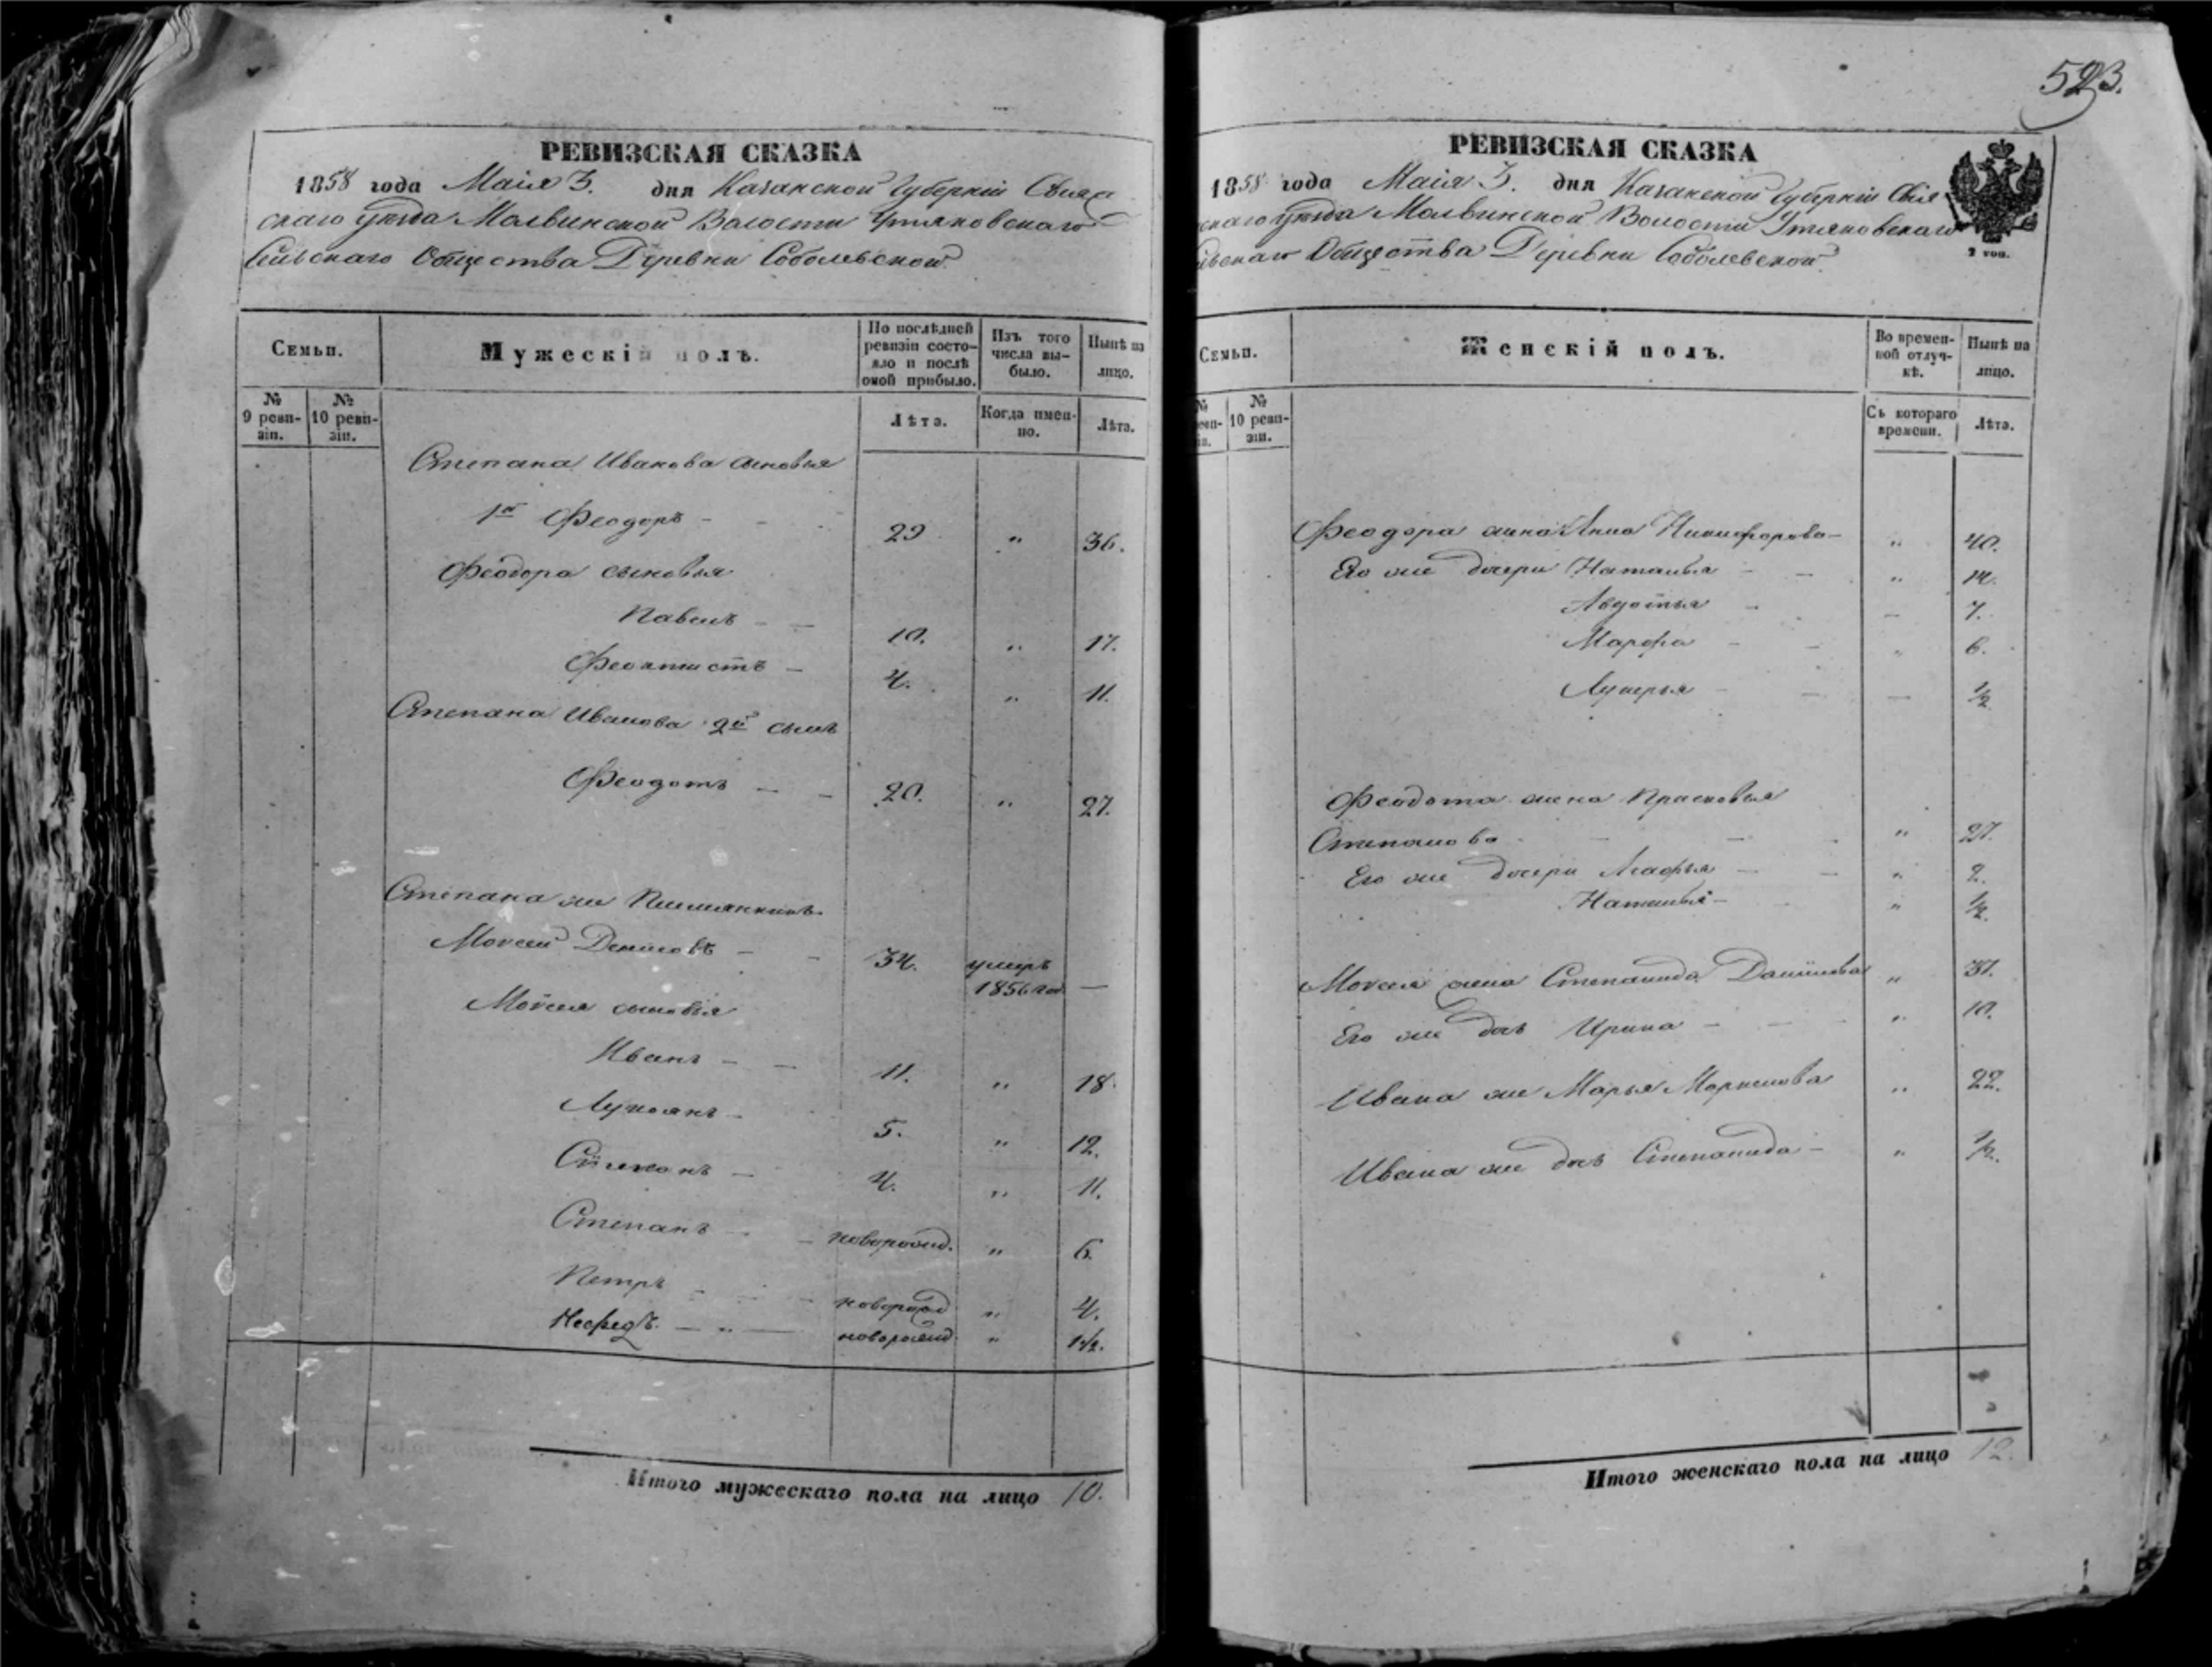 РЕВИЗСКАЯ СКАЗКА
1858 года Маія 3. дня Казанской Губерніи Свіяж
скаго уѣзда Молвинской Волости Утяковскаго
Сельскаго Общества Деревни Соболевской.
Семьи.
Мужескій полъ.
По послѣдней ревизіи состо-
яло и послѣ
оной прибыло.
Изъ того
числа вы-
было.
Нынѣ на
лицо.
№
9 реви-
зіи.
№
10 реви-
зіи.
Лѣта.
Когда имен-
но.
Лѣта.
Степана Иванова сыновья
1й Феодоръ - - 29 " 36.
Феодора сыновья
Павелъ - - 10. " 17.
Феоктистъ - 4. " 11.
Степана Иванова 2й сынъ
Феодотъ - - 20. " 27.
Степана же Племянникъ
Моисей Даниловъ - - 34. умеръ
1856 год —
Моисея сыновья
Иванъ - - 11. " 18.
Лукоянъ - 5. " 12.
Симеонъ - 4. " 11.
Степанъ - - новорожд. " 6.
Петръ - - - новорожд " 4.
Нефедъ. - " - новорожд. " 1 1/2.
Итого мужескаго пола на лицо 10.
523.
РЕВИЗСКАЯ СКАЗКА
1858 года Маія 3. дня Казанской Губерніи Свія
скаго уѣзда Молвинской Волости Утяковскаго
льскаго Общества Деревни Соболевской.
2 коп.
Семьи.
Женскій полъ.
Во времен-
ной отлуч-
кѣ.
Нынѣ на
лицо.
№
реви-
зіи.
№
10 реви-
зіи.
Съ котораго
времени.
Лѣта.
Феодора жена Анна Никифорова - " 40.
Его же дочери Наталья - - " 14.
Авдотья - — 7.
Марфа - - " 6.
Лукерья - - — 1/2
Феодота жена Прасковья
Степанова - - - " 27.
Его же дочери Агафья - - " 2.
Наталья - " 1/2.
Моисея жена Степанида Данилова " 51.
Его же дочь Ирина - - - " 10.
Ивана же Марья Маркелова " 22.
Ивана же дочь Степанида - " 1/2.
Итого женскаго пола на лицо 12.